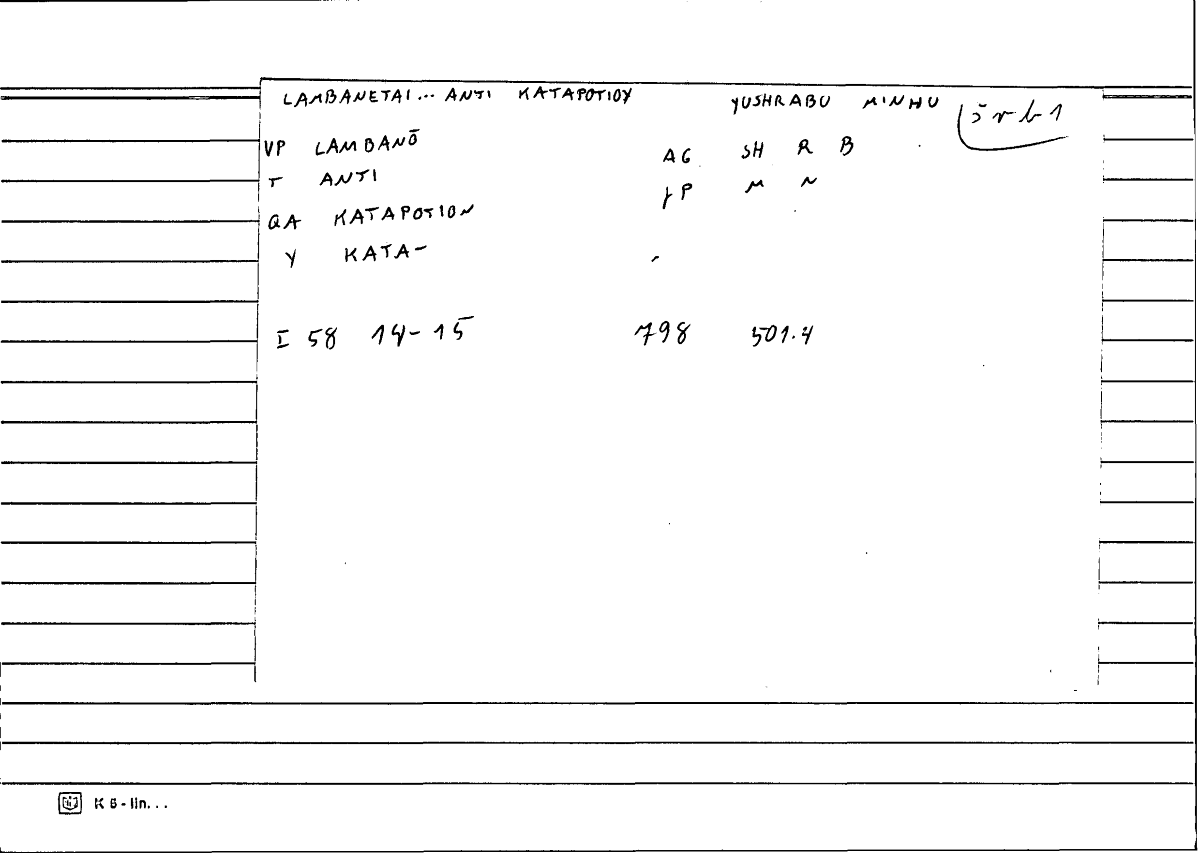 LAMBANETAI... ANTI KATAPOTIOY YUSHRABU MINHU šrb1
VP LAMBANŌ AG SH R B
T ANTI P M N
QA KATAPOTION
Y KATA-
I 58 14-15 798 501.4
K 6 - lin...